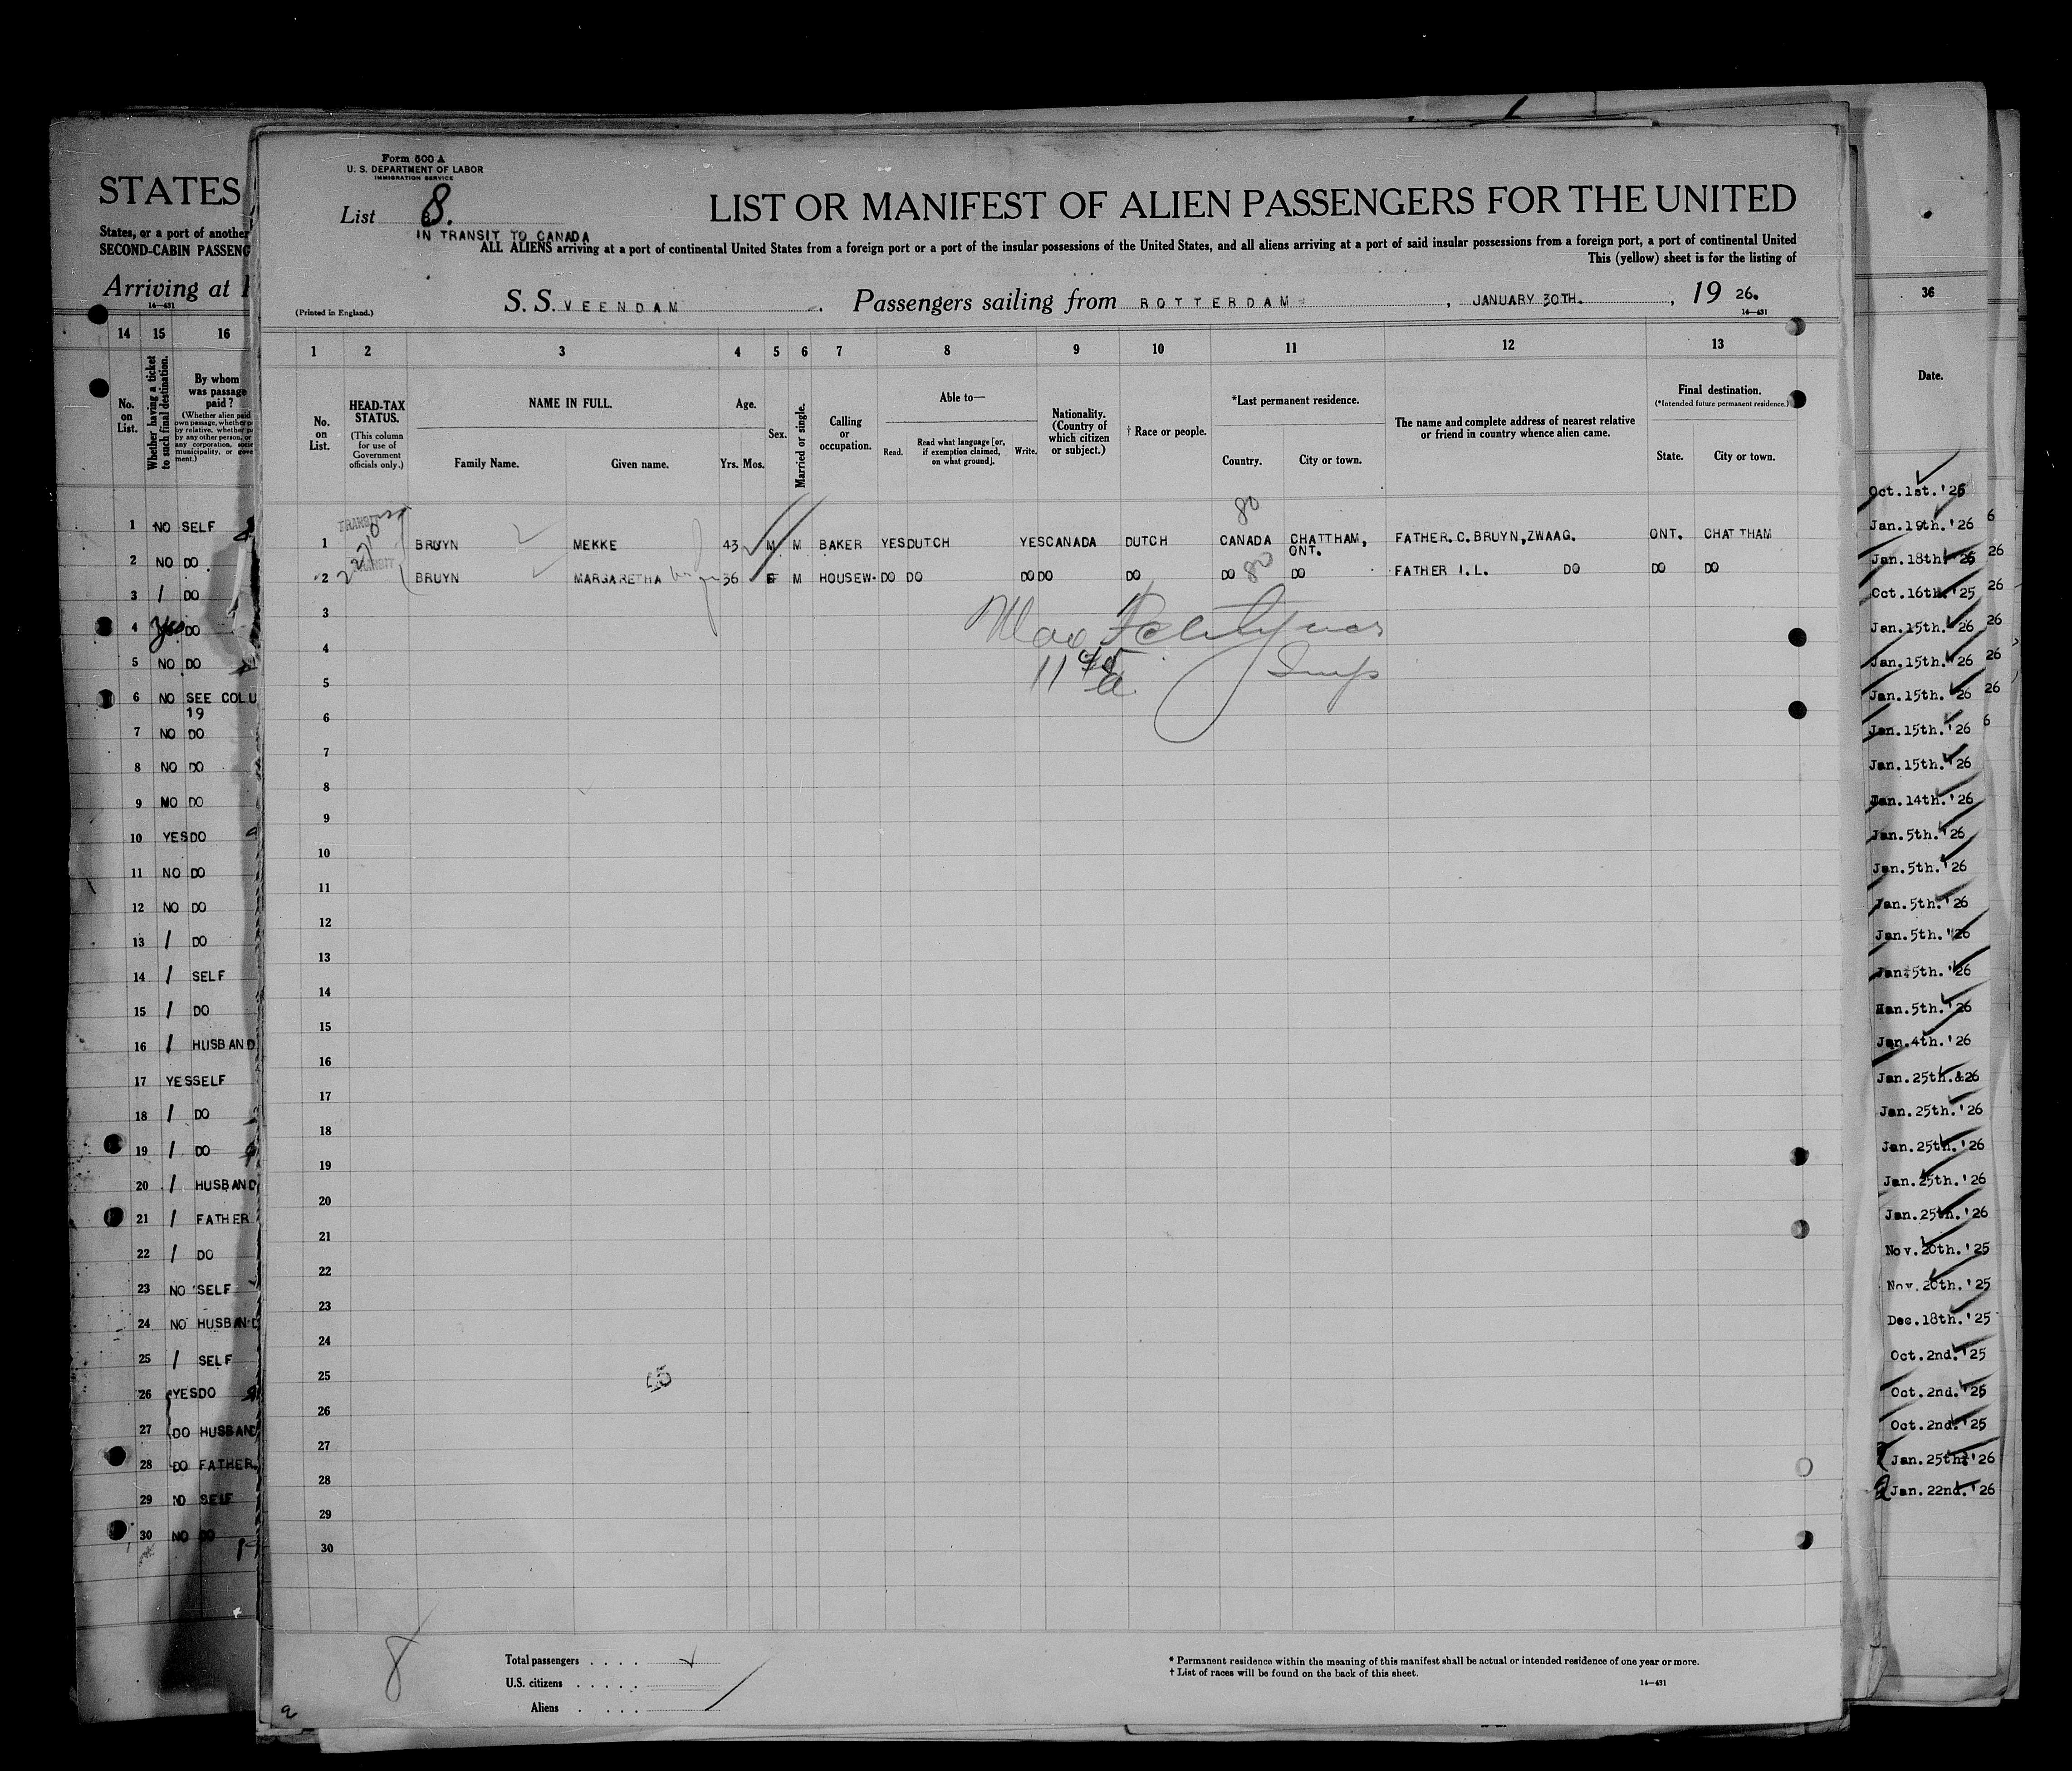 Form 500 A
U. S. DEPARTMENT OF LABOR
IMMIGRATION SERVICE
List 8.
IN TRANSIT TO CANADA
LIST OR MANIFEST OF ALIEN PASSENGERS FOR THE UNITED
ALL ALIENS arriving at a port of continental United States from a foreign port or a port of the insular possessions of the United States, and all aliens arriving at a port of said insular possessions from a foreign port, a port of continental United
This (yellow) sheet is for the listing of
(Printed in England.)
S. S. VEENDAM . Passengers sailing from ROTTERDAM , JANUARY 30TH. , 19 26.
14—431
1 2 3 4 5 6 7 8 9 10 11 12 13
No. on List.
HEAD-TAX STATUS.
(This column for use of Government officials only.)
NAME IN FULL.
Family Name. Given name.
Age.
Yrs. Mos.
Sex.
Married or single.
Calling or occupation.
Able to—
Read. Read what language [or, if exemption claimed, on what ground]. Write.
Nationality. (Country of which citizen or subject.)
† Race or people.
*Last permanent residence.
Country. City or town.
The name and complete address of nearest relative or friend in country whence alien came.
Final destination.
(*Intended future permanent residence.)
State. City or town.
TRANSIT
80
1 BRUYN MEKKE 43 M M BAKER YES DUTCH YES CANADA DUTCH CANADA CHATTHAM, ONT. FATHER. C. BRUYN, ZWAAG. ONT. CHATTHAM
2 BRUYN MARGARETHA 36 F M HOUSEW- DO DO DO DO DO DO 80 DO FATHER I.L. DO DO DO
3
4
5
6
7
8
9
10
11
12
13
14
15
16
17
18
19
20
21
22
23
24
25
26
27
28
29
30
8
Total passengers . . . .
U.S. citizens . . . . .
Aliens . . . .
* Permanent residence within the meaning of this manifest shall be actual or intended residence of one year or more.
† List of races will be found on the back of this sheet.
14—431
STATES
States, or a port of another
SECOND-CABIN PASSENG
Arriving at
14—431
14 15 16
No. on List.
Whether having a ticket to such final destination.
By whom was passage paid?
1 NO SELF
2 NO DO
3 / DO
4 Yes DO
5 NO DO
6 NO SEE COLU
19
7 NO DO
8 NO DO
9 NO DO
10 YES DO
11 NO DO
12 NO DO
13 / DO
14 / SELF
15 / DO
16 / HUSBAND
17 YES SELF
18 / DO
19 / DO
20 / HUSBAND
21 / FATHER
22 / DO
23 NO SELF
24 NO HUSBAND
25 / SELF
26 YES DO
27 DO HUSBAND
28 DO FATHER.
29 NO SELF
30 NO DO
36
Date.
Oct.1st.'25
Jan.19th.'26
Jan.18th.'26
Oct.16th.'25
Jan.15th.'26
Jan.15th.'26
Jan.15th.'26
Jan.15th.'26
Jan.15th.'26
Jan.14th.'26
Jan.5th.'26
Jan.5th.'26
Jan.5th.'26
Jan.5th.'26
Jan.5th.'26
Jan.5th.'26
Jan.4th.'26
Jan.25th.&26
Jan.25th.'26
Jan.25th.'26
Jan.25th.'26
Jan.25th.'26
Nov.20th.'25
Nov.20th.'25
Dec.18th.'25
Oct.2nd.'25
Oct.2nd.'25
Oct.2nd.'25
Jan.25th.'26
Jan.22nd.'26